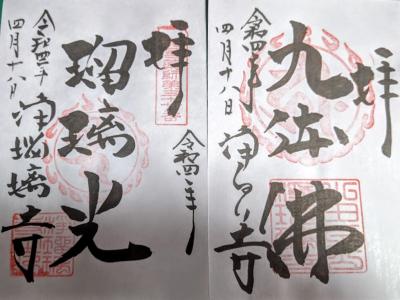 拝
九体佛
令和四年
四月十八日
浄瑠璃寺
拝
令和四年
瑠璃光
令和四年
四月十八日
浄瑠璃寺